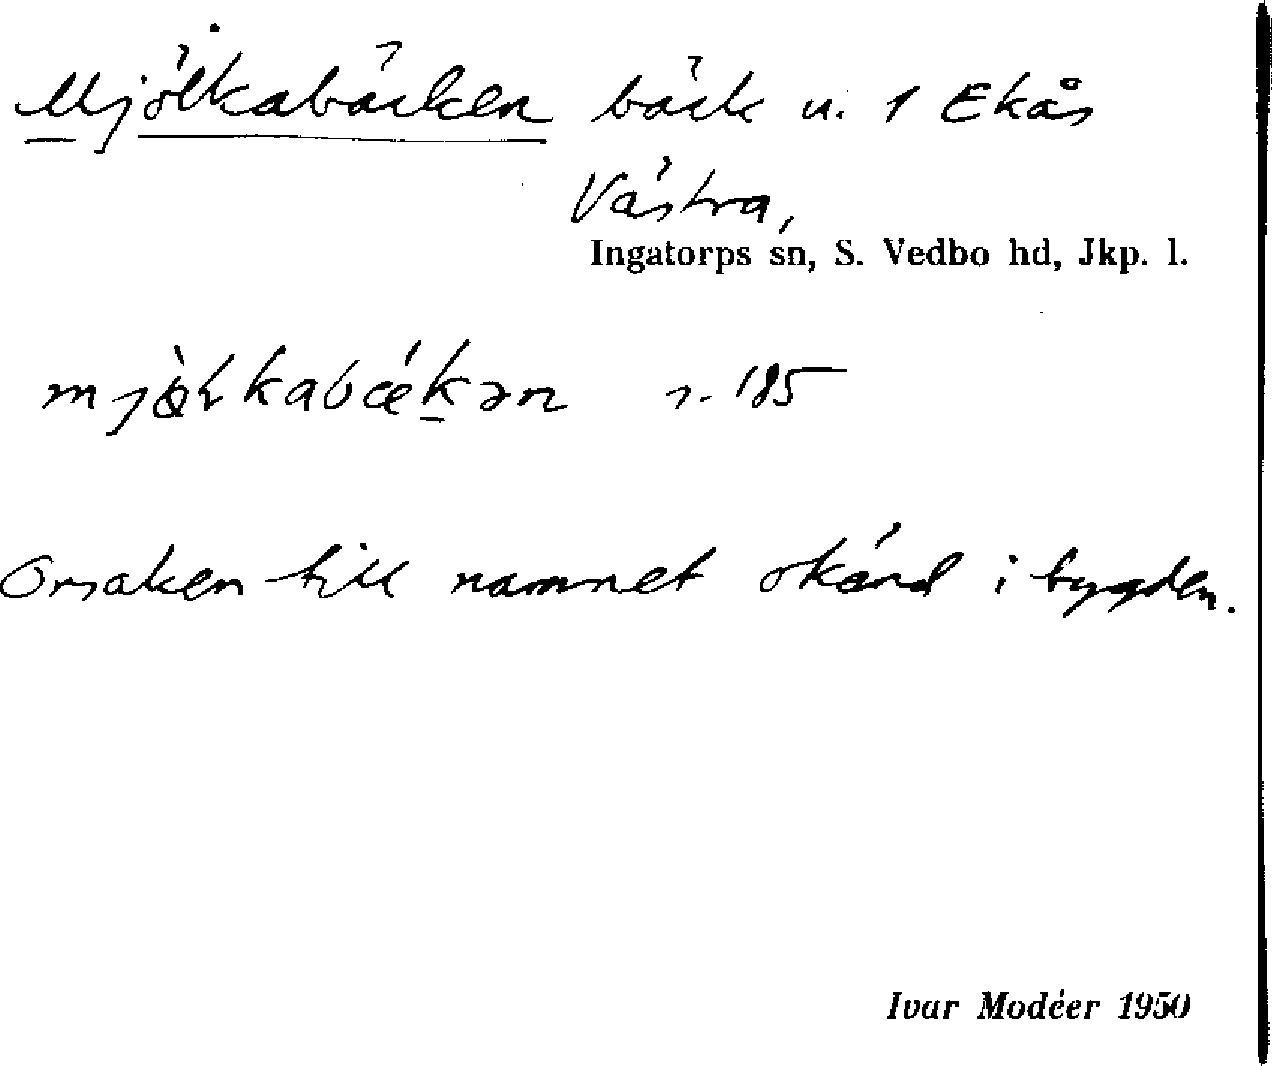 Mjölkabäcken bäck u. 1 Ekås
Västra,
Ingatorps sn, S. Vedbo hd, Jkp. l.
s. 185
Orsaken till namnet okänd i bygden.
Ivar Modéer 1950